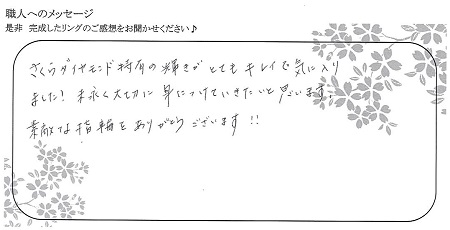 職人へのメッセージ
是非 完成したリングのご感想をお聞かせください♪
さくらダイヤモンド特有の輝きがとてもキレイで気に入り
ました！末永く大切に身につけていきたいと思います。
素敵な指輪をありがとうございます!!